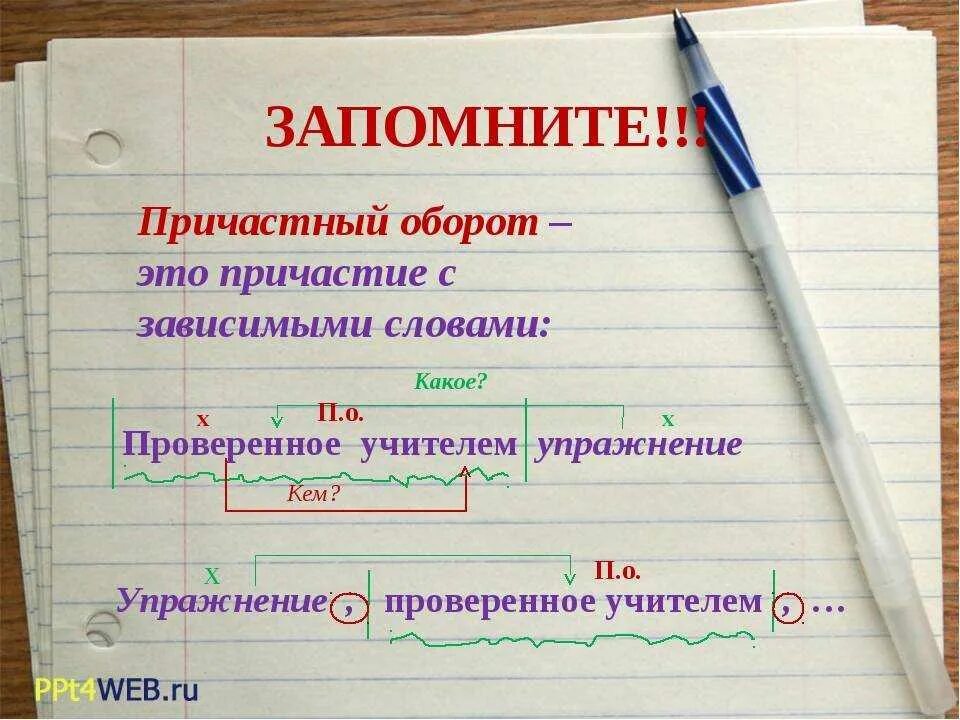 ЗАПОМНИТЕ!!!
Причастный оборот –
это причастие с
зависимыми словами:
Какое?
х П.о. х
Проверенное учителем упражнение
Кем?
Х П.о.
Упражнение , проверенное учителем , ...
PPt4WEB.ru